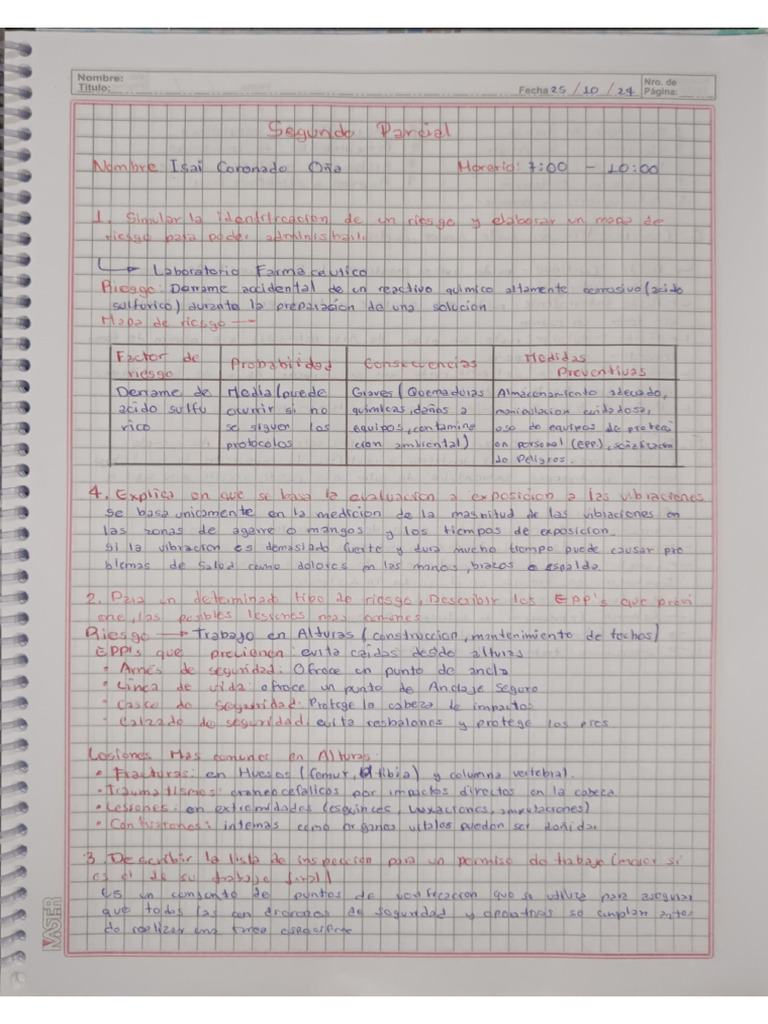 Nombre:
Título:
Fecha 25 / 10 / 24
Nro. de
Página:
Segundo Parcial
Nombre Isai Coronado Oña Horario: 7:00 - 10:00
1. Simular la identificacion de un riesgo y elaborar un mapa de
riesgo para poder administrarlo
Laboratorio Farmaceutico
Riesgo: Derrame accidental de un reactivo químico altamente corrosivo (acido
sulforico) durante la preparacion de una solucion
Mapa de riesgo
Factor de riesgo
Probabilidad
Consecuencias
Medidas Preventivas
Derrame de
acido sulfu
rico
Media (puede
ocurrir si no
se siguen los
protocolos
Graves (Quemaduras
químicas, daños a
equipos, contamina
cion ambiental)
Almacenamiento adecuado,
manipulacion cuidadosa,
uso de equipos de protecci
on personal (EPP),
de Peligros.
4. Explica en que se basa la evaluacion a exposicion a las vibraciones
se basa unicamente en la medicion de la magnitud de las vibraciones en
las zonas de agarre o mangos y los tiempos de exposicion.
si la vibracion es demasiado fuerte y dura mucho tiempo puede causar pro
blemas de salud como dolores en las manos, brazos o espalda
2. Para un determinado tipo de riesgo, Describir los EPP's que previ
ene, las posibles lesiones mas comunes
Riesgo Trabajo en Alturas (construccion, mantenimiento de techos)
EPP's que previenen: evita caidas desde alturas
• Arnés de seguridad: Ofroce un punto de ancla
• Linea de vida: ofroce un punto de Anclaje seguro
• Casco de seguridad: Protege la cabeza de impactos
• Calzado de seguridad: evita resbalones y protege los pies
Lesiones Mas comunes en Alturas:
• Fracturas: en Huesos (femur, tibia) y columna vertebral.
• Traumatismos: craneocefalicos por impactos directos en la cabeza
• Lesiones: en extremidades (esguinces, luxaciones, amputaciones)
• Contusiones: internas como organos vitales pueden ser dañidas
3. Describir la lista de inspección para un permiso de trabajo (mejor si
es el de su trabajo final)
Es un conjunto de puntos de verificacion que se utiliza para asegurar
que todos las de seguridad y operativas se cumplan antes
de realizar una tarea especifica
VASER